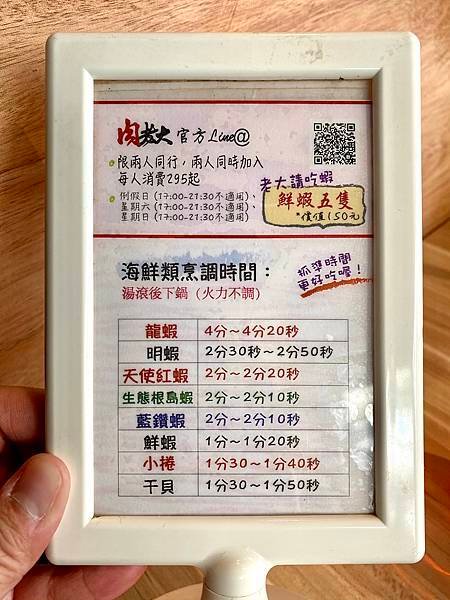 肉老大 官方Line@
限兩人同行，兩人同時加入
每人消費295起
例假日 (17:00-21:30不適用)、
星期六 (17:00-21:30不適用)、
星期日 (17:00-21:30不適用)
老大請吃蝦
鮮蝦五隻
*價值150元
海鮮類烹調時間：
湯滾後下鍋（火力不調）
抓準時間
更好吃喔！
龍蝦 4分～4分20秒
明蝦 2分30秒～2分50秒
天使紅蝦 2分～2分20秒
生態根島蝦 2分～2分10秒
藍鑽蝦 2分～2分10秒
鮮蝦 1分～1分20秒
小捲 1分30～1分40秒
干貝 1分30～1分50秒